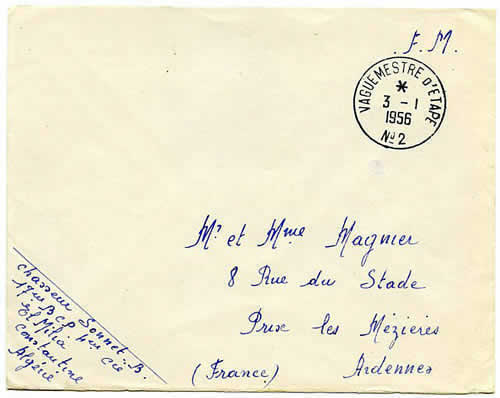 F.M.
VAGUEMESTRE D'ETAPE
*
3 - 1
1956
No 2
Mr et Mme Magnier
8 Rue du Stade
Prix les Mézieres
(France) Ardennes
chasseur Sonnet. B.
17em BCP 4em Cie
El Milia
Constantine
Algérie